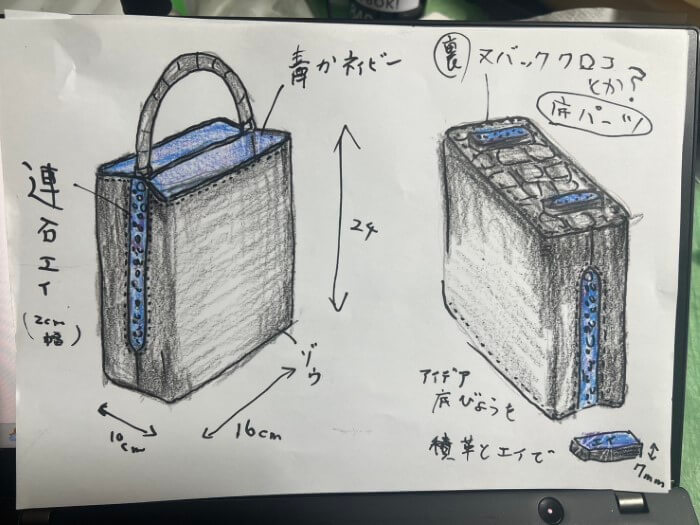 青かネイビー
連石エイ
(2cm幅)
24
ゾウ
10cm
16cm
裏
ヌバッククロコ
とか?
底パーツ
アイデア
底びょうを
積革とエイで
エイ
7mm